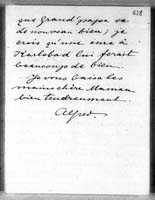 628
que Grand'papa va
de nouveau bien; je
crois qu'une cure à
Karlsbad lui ferait
beaucoup de bien.
Je vous baise les
mains chère Maman
bien tendrement.
Alfred.